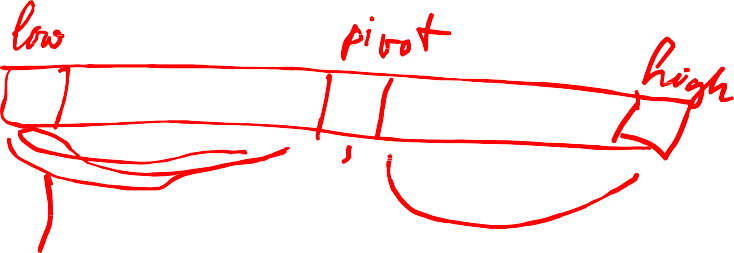 low
pivot
high